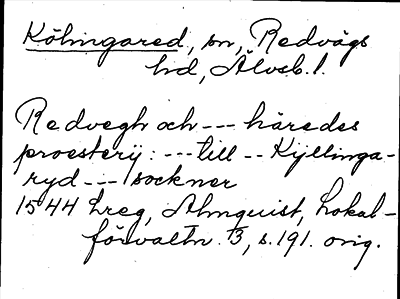 Kölingared, sn, Redvägs
hd, Älvsb. l.
Redvegh och --- häredes
proesterij: --- till -- Kyllinga-
ryd --- sockner
1544 Lreg, Almquist, Lokal-
förvaltn. 13, s. 191. orig.